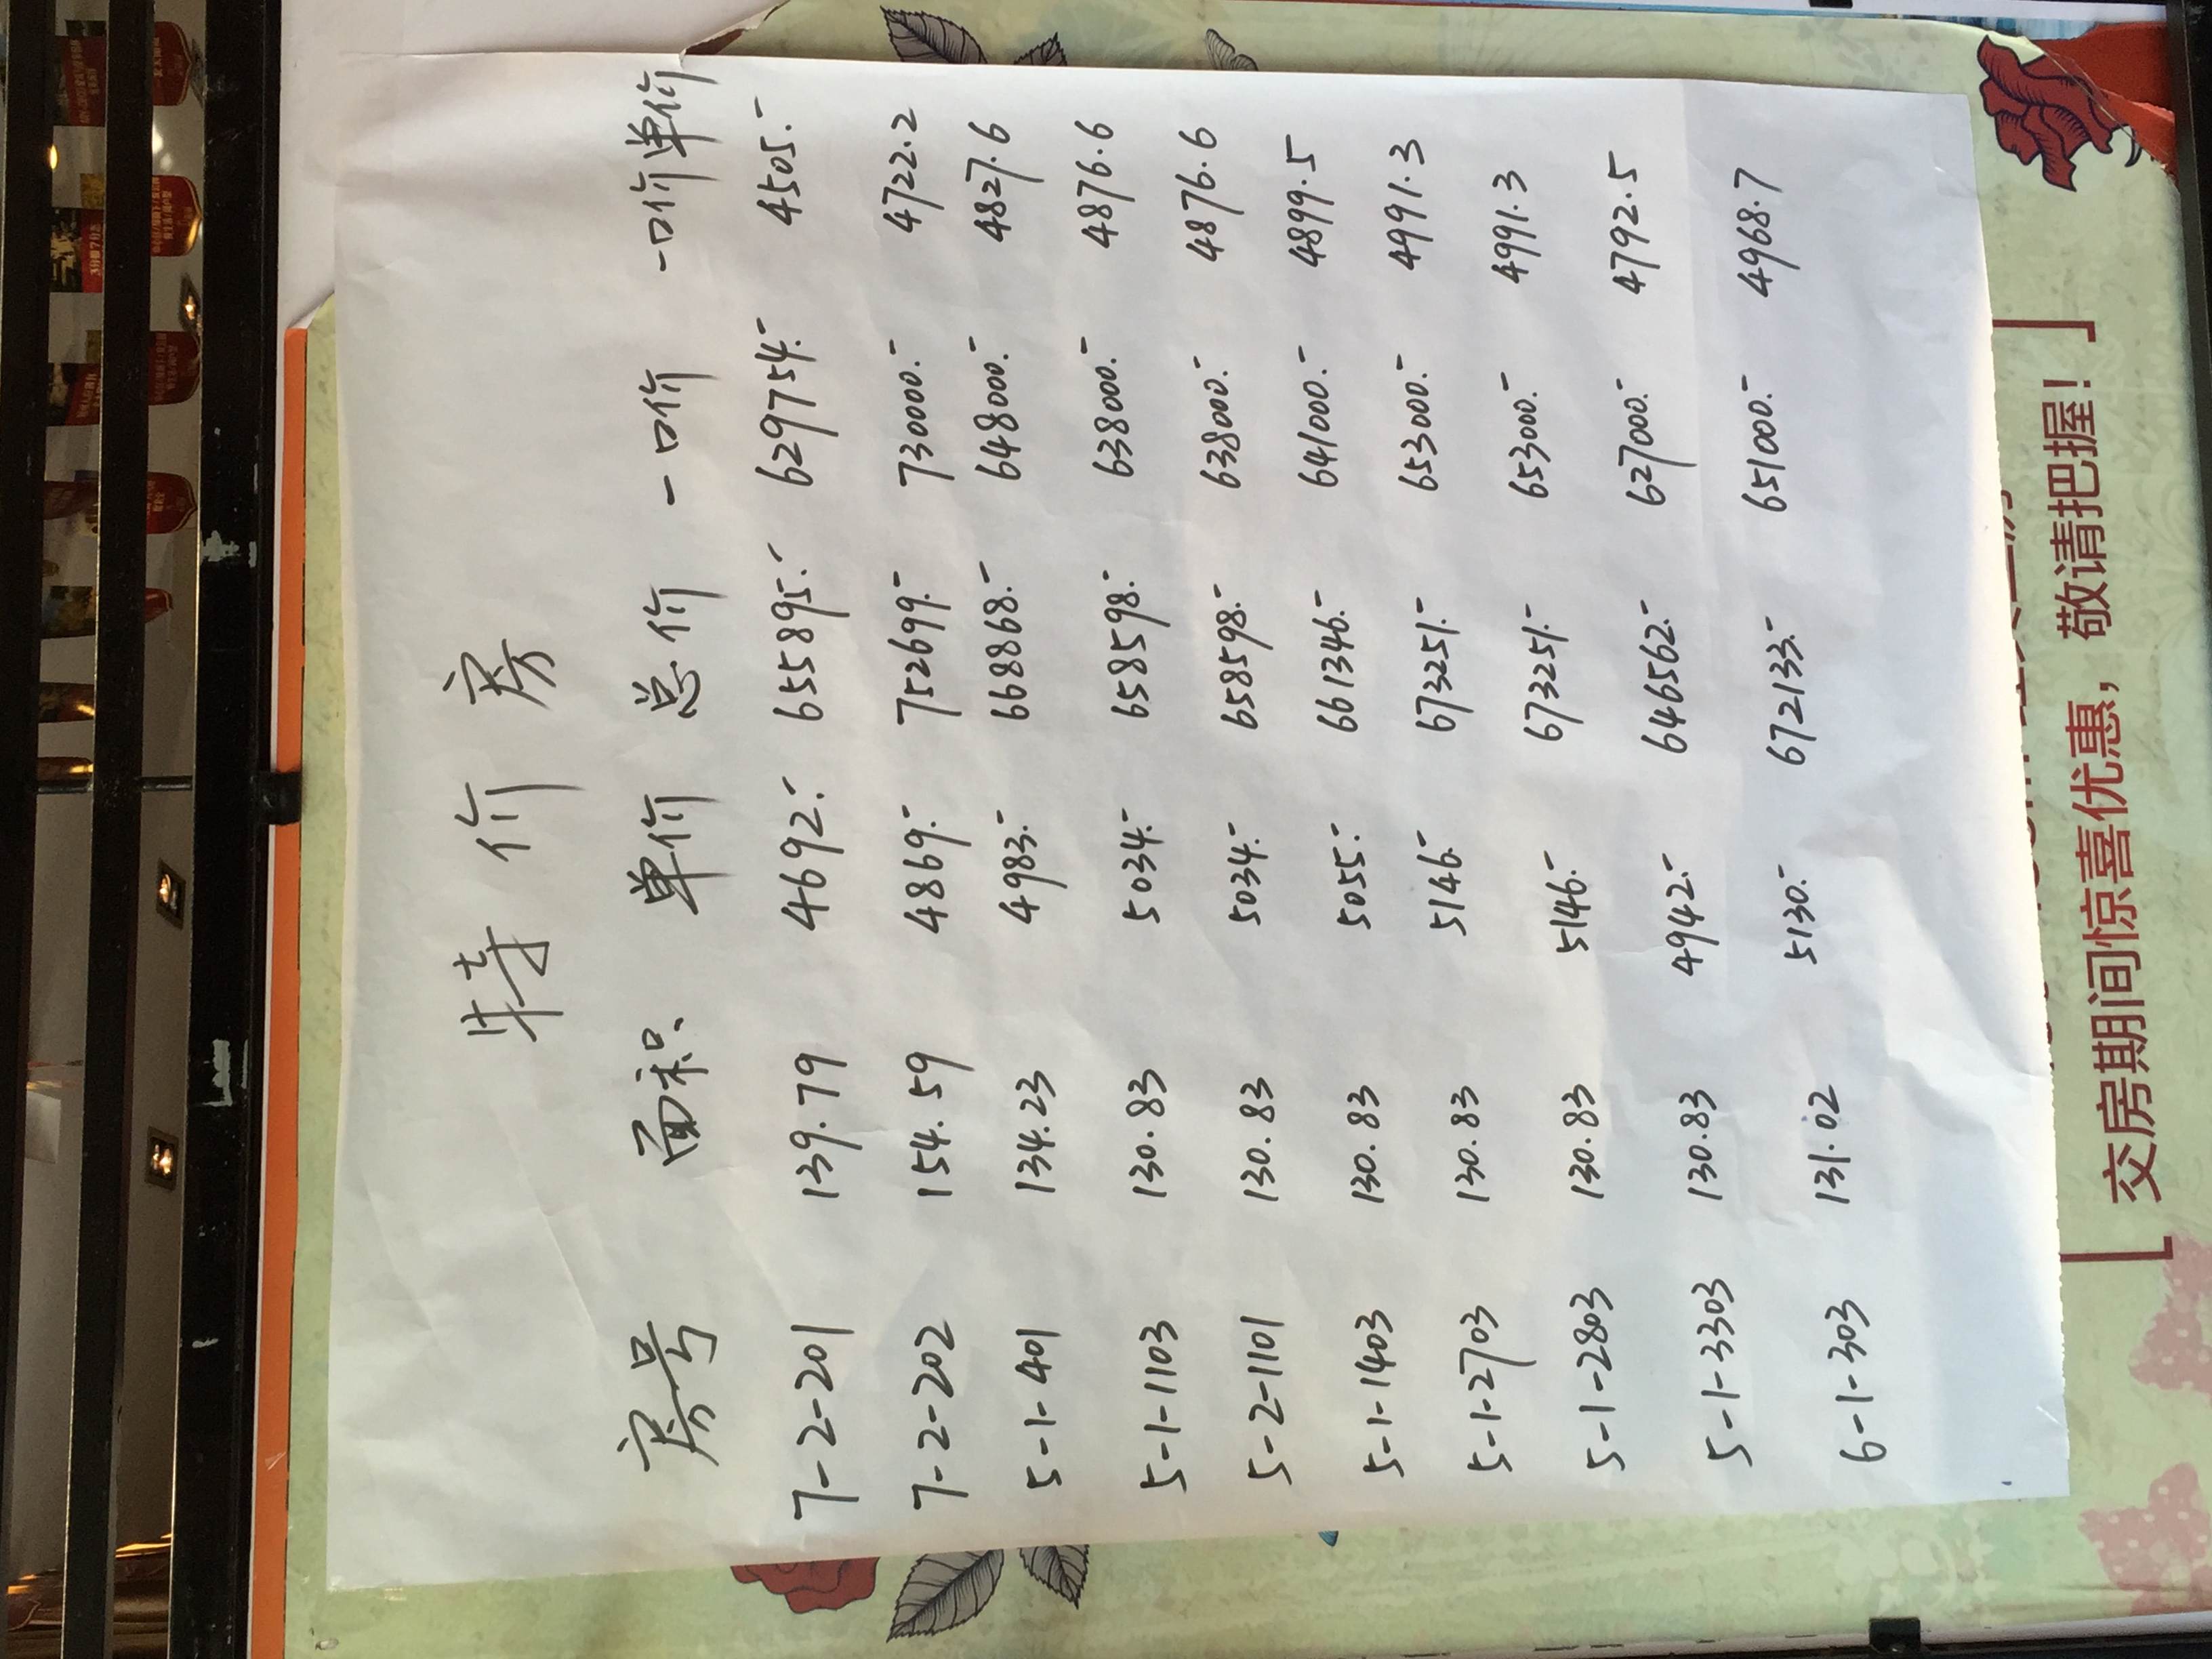 特价房
房号 面积 单价 总价 一口价 一口价单价
7-2-201 139.79 4692.- 655895.- 629754.- 4505.-
7-2-202 154.59 4869.- 752699.- 730000.- 4722.2
5-1-401 134.23 4983.- 668868.- 648000.- 4827.6
5-1-1103 130.83 5034.- 658598.- 638000.- 4876.6
5-2-1101 130.83 5034.- 658598.- 638000.- 4876.6
5-1-1403 130.83 5055.- 661346.- 641000.- 4899.5
5-1-2703 130.83 5146.- 673251.- 653000.- 4991.3
5-1-2803 130.83 5146.- 673251.- 653000.- 4991.3
5-1-3303 130.83 4942.- 646562.- 627000.- 4792.5
6-1-303 131.02 5130.- 672133.- 651000.- 4968.7
交房期间惊喜优惠，敬请把握！